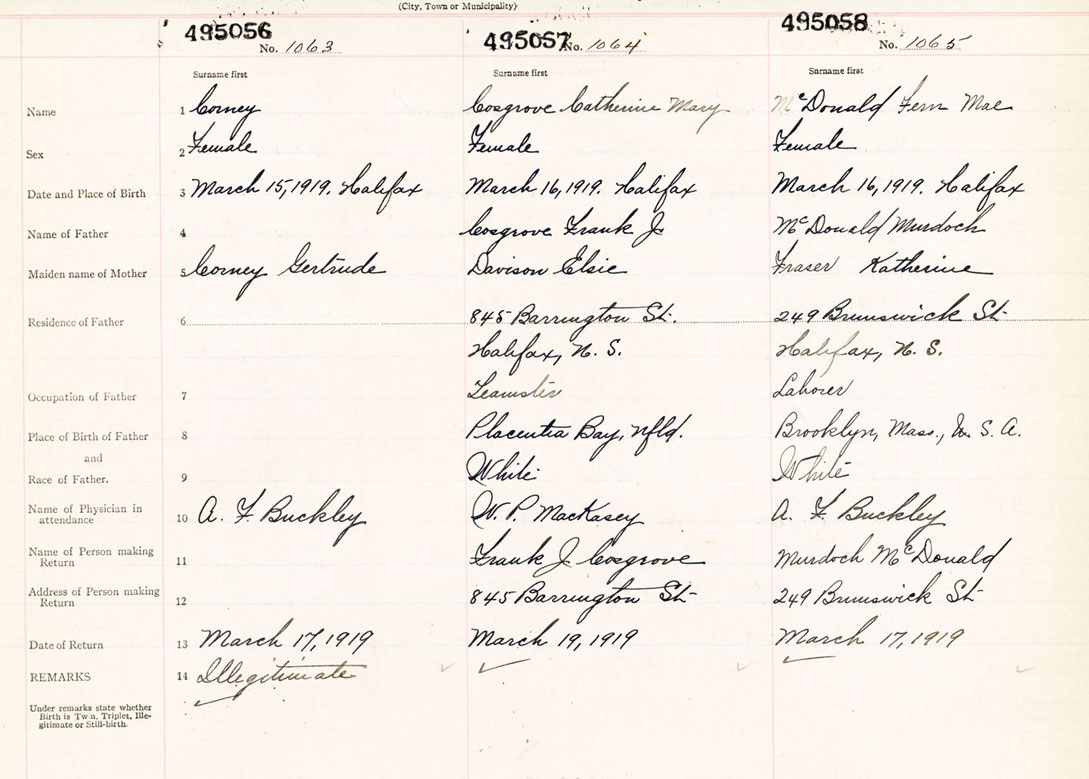 (City, Town or Municipality)
495056 495057 495058
No. 1063 No. 1064 No. 1065
Surname first Surname first Surname first
Name 1 Corney Cosgrove Catherine Mary McDonald Fern Mae
Sex 2 Female Female Female
Date and Place of Birth 3 March 15, 1919. Halifax March 16, 1919. Halifax March 16, 1919. Halifax
Name of Father 4 Cosgrove Frank J. McDonald Murdoch
Maiden name of Mother 5 Corney Gertrude Davison Elsie Fraser Katherine
Residence of Father 6 845 Barrington St. 249 Brunswick St.
Halifax, N. S. Halifax, N. S.
Occupation of Father 7 Teamster Laborer
Place of Birth of Father 8 Placentia Bay, Nfld. Brooklyn, Mass., U. S. A.
and
Race of Father. 9 White White
Name of Physician in attendance 10 A. F. Buckley W. P. MacKasey A. F. Buckley
Name of Person making Return 11 Frank J. Cosgrove Murdoch McDonald
Address of Person making Return 12 845 Barrington St. 249 Brunswick St.
Date of Return 13 March 17, 1919 March 19, 1919 March 17, 1919
REMARKS 14 Illegitimate
Under remarks state whether
Birth is Twin, Triplet, Ille-
gitimate or Still-birth.